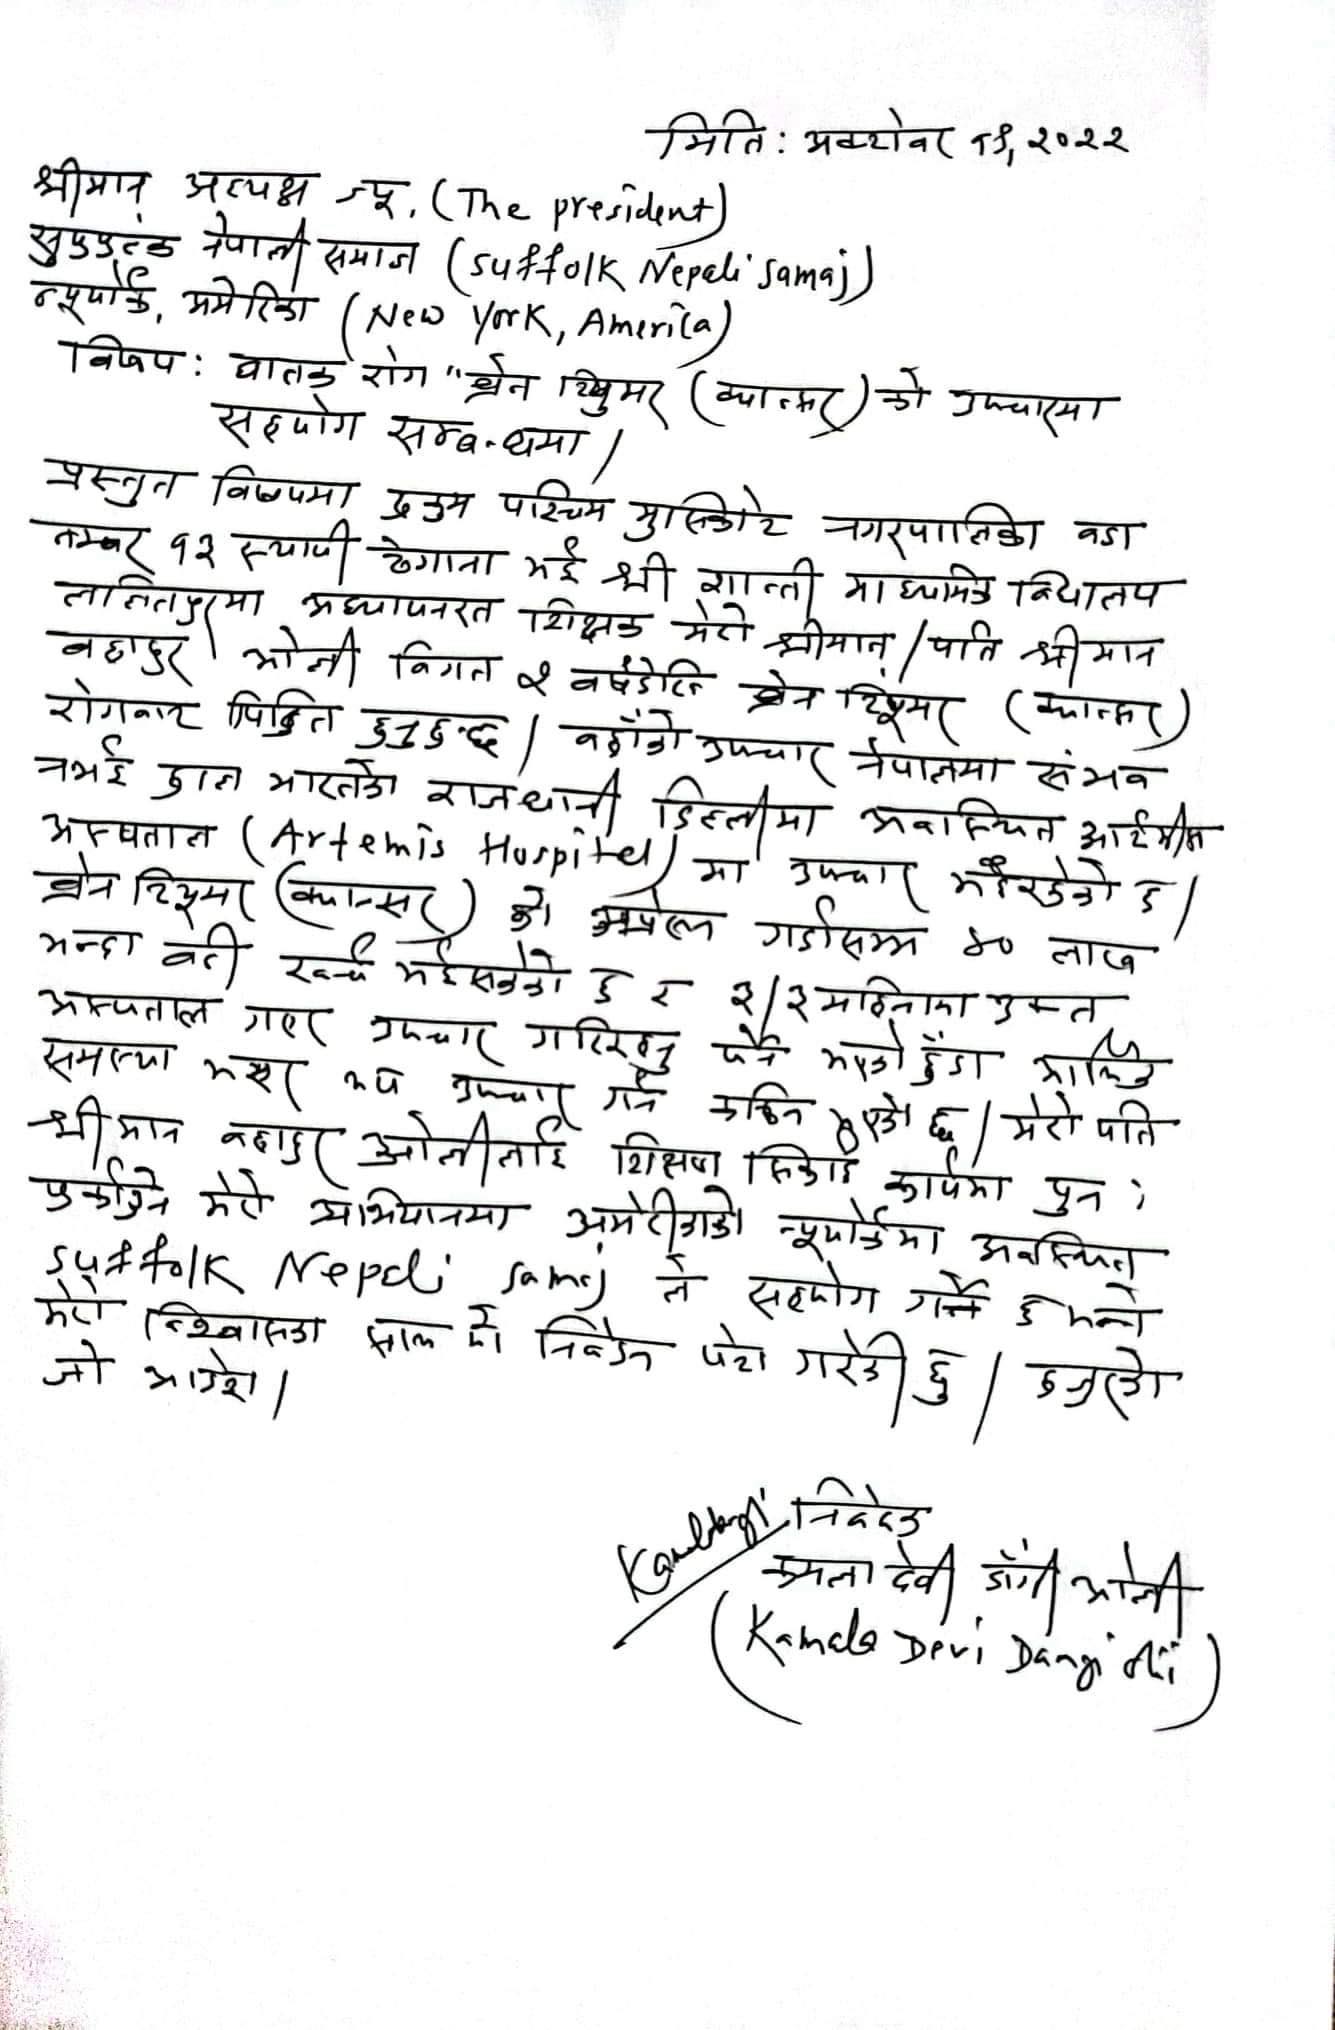 मिति: अक्टोबर १९, २०२२
श्रीमान् अध्यक्ष ज्यू, (The president)
सुफफल्क नेपाली समाज (Suffolk Nepali Samaj)
न्यूयोर्क, अमेरिका (New York, America)
विषय: घातक रोग "ब्रेन ट्युमर (क्यान्सर) को उपचारमा
सहयोग सम्बन्धमा।
प्रस्तुत विषयमा रुकुम पश्चिम मुसिकोट नगरपालिका वडा
नम्बर १२ स्थायी ठेगाना भई श्री शान्ती माध्यमिक विद्यालय
ललितपुरमा अध्यापनरत शिक्षक मेरो श्रीमान्/पति श्री मान
बहादुर ओली विगत २ वर्षदेखि ब्रेन ट्यूमर (क्यान्सर)
रोगबाट पिडित हुनुहुन्छ। वहाँको उपचार नेपालमा संभव
नभई हाल भारतको राजधानी दिल्लीमा अवस्थित आर्टमीस
अस्पताल (Artemis Hospital) मा उपचार भईरहेको छ।
ब्रेन ट्यूमर (क्यान्सर) को अप्रेसन गर्दासम्म ४० लाख
भन्दा बढी खर्च भईसकेको छ र २/३ महिनामा उक्त
अस्पताल गएर उपचार गरिरहनु पर्ने भएको हुँदा आर्थिक
समस्या भएर थप उपचार गर्न कठिन भएको छ। मेरो पति
श्री मान बहादुर ओलीलाई शिक्षण सिकाई कार्यमा पुन:
फर्काउने मेरो अभियानमा अमेरीकाको न्यूयोर्कमा अवस्थित
Suffolk Nepali Samaj ले सहयोग गर्ने छ भन्ने
मेरो विश्वासका साथ यो निवेदन पेश गरेकी छु। हजुरको
जो आदेश।
Kamldangi निवेदक
कमला देवी डाँगी ओली
(Kamala Devi Dangi Oli)